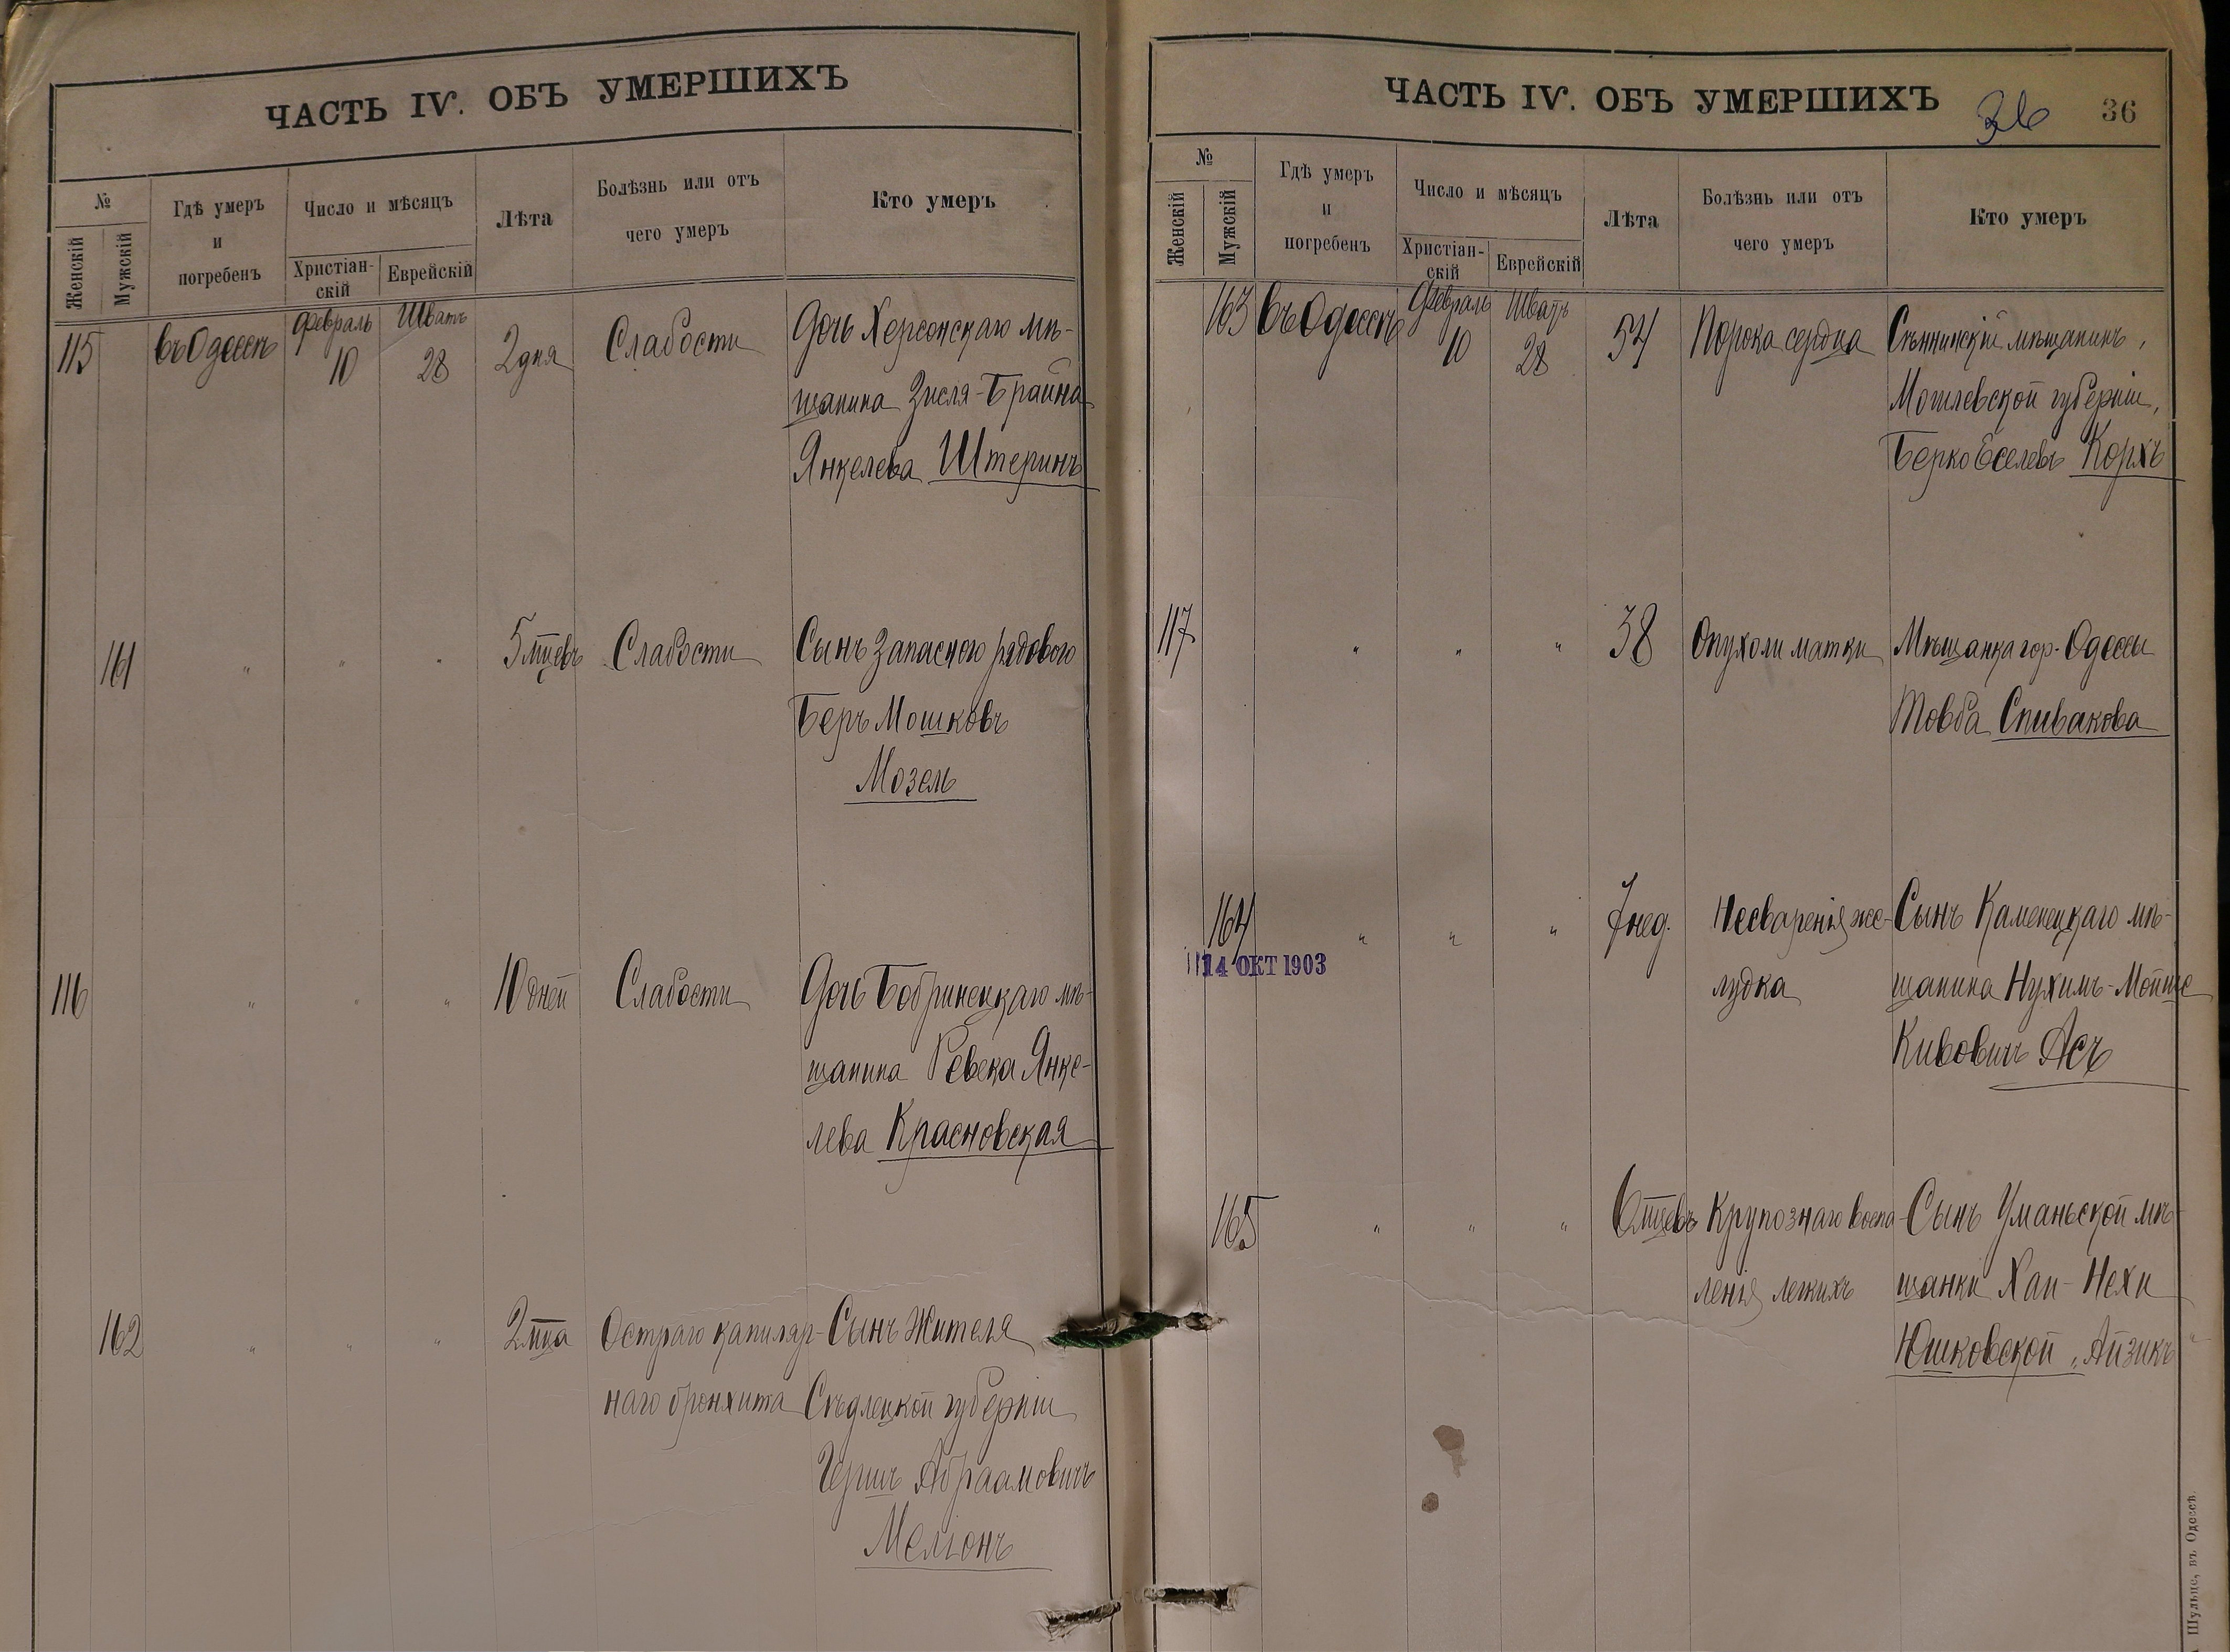 ЧАСТЬ IV. ОБЪ УМЕРШИХЪ
№
Женскій
Мужскій
Гдѣ умеръ
и
погребенъ
Число и мѣсяцъ
Христіан-
скій
Еврейскій
Лѣта
Болѣзнь или отъ
чего умеръ
Кто умеръ
115
въ Одессѣ
Февраль
10
Шватъ
28
2 дня
Слабости
Дочь Херсонскаго мѣ-
щанина Зисля-Брайна
Янкелева Штеринъ
161
"
"
"
5 мцевъ
Слабости
Сынъ Запаснаго рядового
Беръ Мошковъ
Мозель
116
"
"
"
10 дней
Слабости
Дочь Бобринецкаго мѣ-
щанина Ревека Янке-
лева Красновская
162
"
"
"
2 мца
Остраго капиляр-
наго бронхита
Сынъ Жителя
Сѣдлецкой губерніи
Гершъ Абраамовичъ
Мелзонъ
ЧАСТЬ IV. ОБЪ УМЕРШИХЪ
36
36
№
Женскій
Мужскій
Гдѣ умеръ
и
погребенъ
Число и мѣсяцъ
Христіан-
скій
Еврейскій
Лѣта
Болѣзнь или отъ
чего умеръ
Кто умеръ
163
въ Одессѣ
Февраль
10
Шватъ
28
54
Порока сердца
Сѣннинскій мѣщанинъ,
Могилевской губерніи,
Берко Еселевъ Корхъ
117
"
"
"
38
Опухоли матки
Мѣщанка гор. Одессы
Товба Спивакова
164
14 ОКТ 1903
"
"
"
7 нед.
Несваренія же-
лудка
Сынъ Каменецкаго мѣ-
щанина Нухимъ-Мойше
Кивовичъ Асъ
165
"
"
"
6 мцевъ
Крупознаго воспа-
ленія легкихъ
Сынъ Уманьской мѣ-
щанки Хаи-Нехи
Юшковской "Айзикъ"
Шульце, въ Одессѣ.